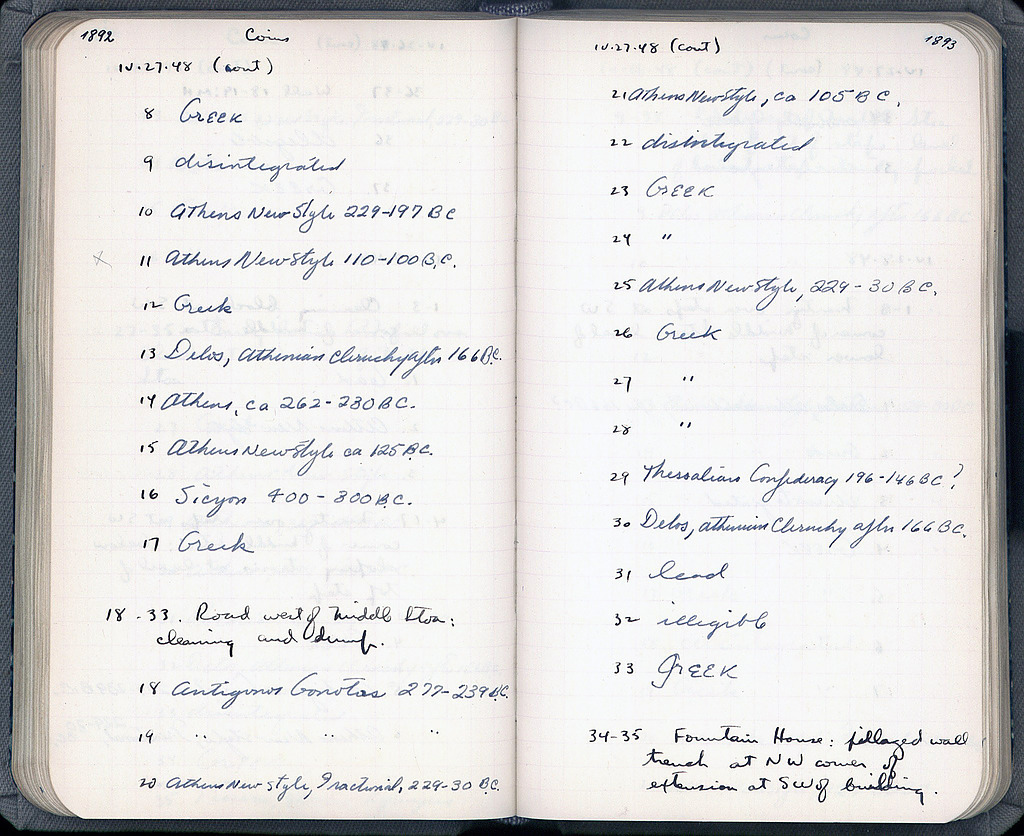 1892 Coins
IV.27.48 (cont)
8 Greek
9 disintegrated
10 Athens New Style 229-197 BC
x 11 Athens New Style 110-100 B.C.
12 Greek
13 Delos, Athenian Cleruchy after 166 B.C.
14 Athens, ca 262-230 B.C.
15 Athens New Style ca 125 B.C.
16 Sicyon 400-300 B.C.
17 Greek
18-33. Road west of Middle Stoa:
cleaning and dump.
18 Antigonos Gonotas 277-239 B.C.
19 " " "
20 Athens New Style, Fractional, 229-30 B.C.
1893
IV.27.48 (cont)
21 Athens New Style, ca 105 B.C.
22 disintegrated
23 Greek
24 "
25 Athens New Style, 229-30 B.C.
26 Greek
27 "
28 "
29 Thessalian Confederacy 196-146 BC?
30 Delos, Athenian Cleruchy after 166 B.C.
31 lead
32 illegible
33 Greek
34-35 Fountain House: pillaged wall
trench at NW corner of
extension at SW of building.